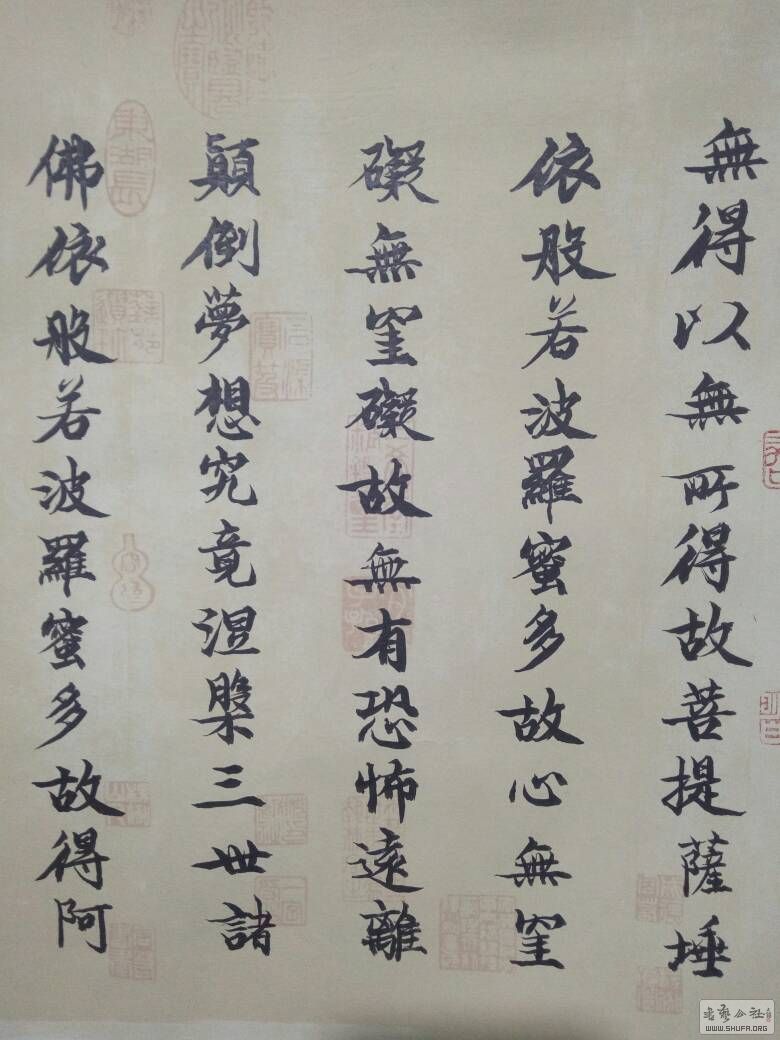 無得以無所得故菩提薩埵
依般若波羅蜜多故心無罣
礙無罣礙故無有恐怖遠離
顛倒夢想究竟涅槃三世諸
佛依般若波羅蜜多故得阿
WWW.SHUFA.ORG